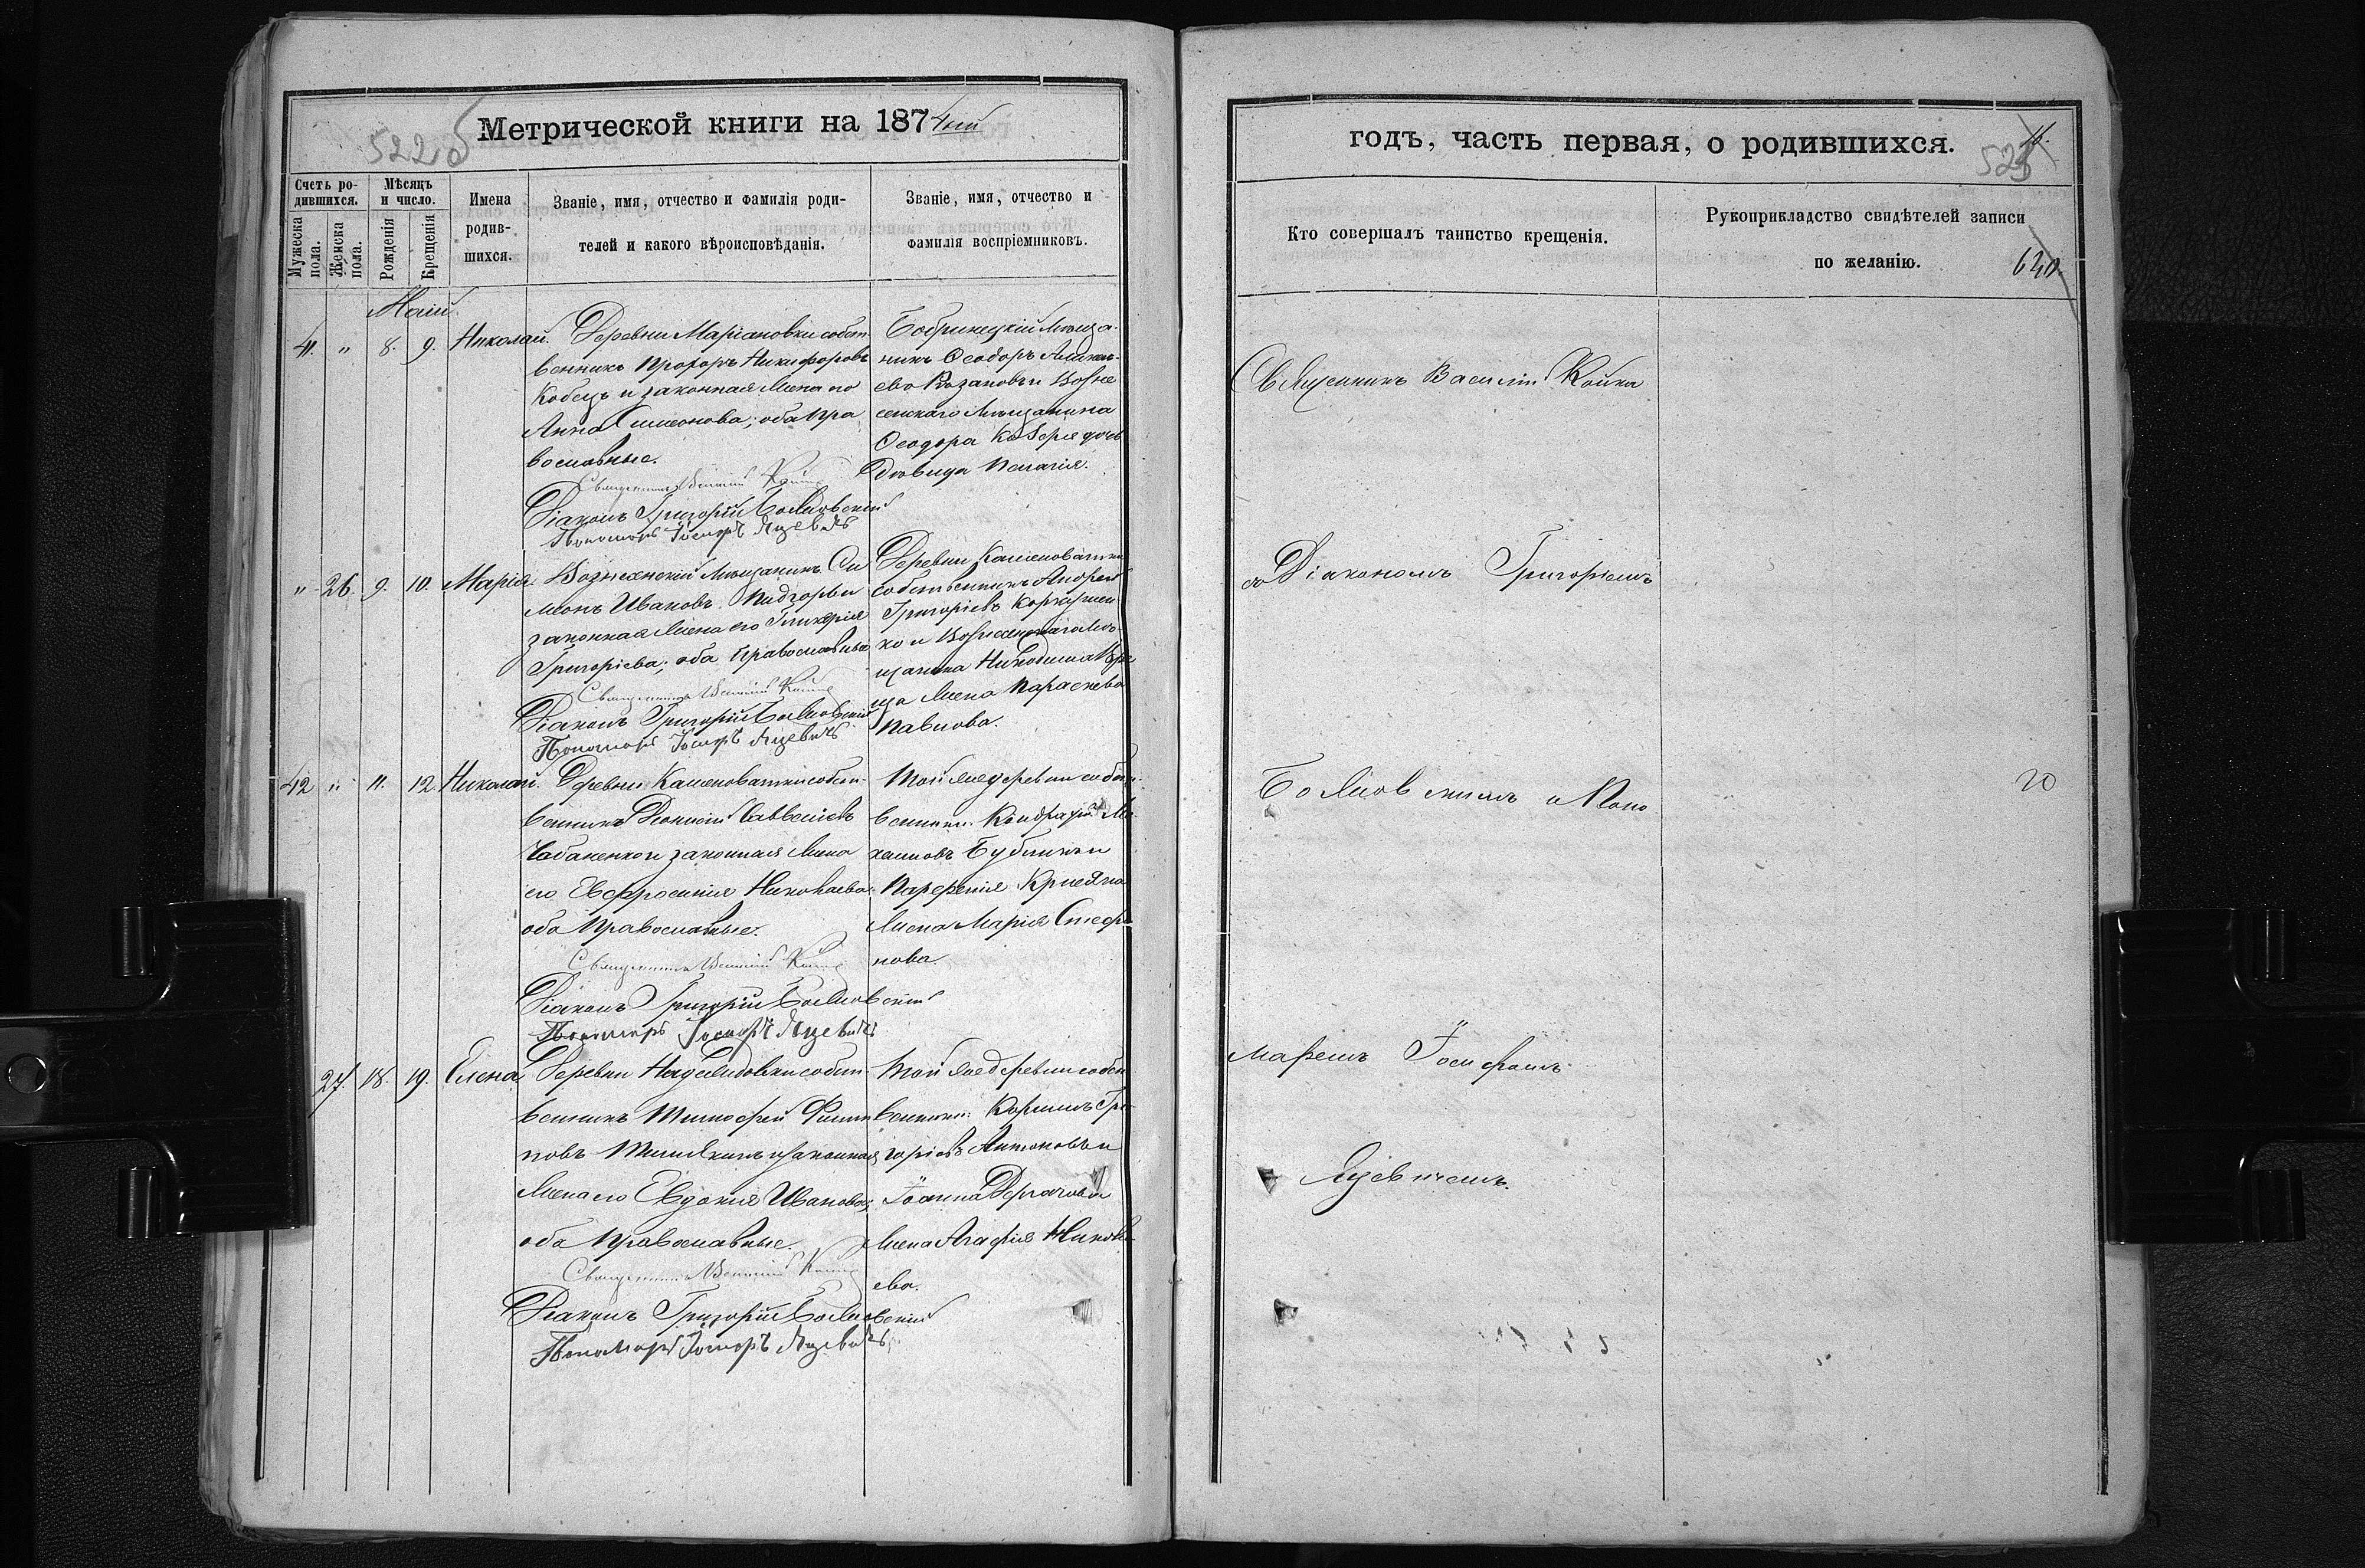 522 б
Метрической книги на 1874ый
Счетъ ро-
дившихся.
Мѣсяцъ
и число.
Имена
родив-
шихся.
Званіе, имя, отчество и фамилія роди-
телей и какого вѣроисповѣданія.
Званіе, имя, отчество и
фамилія воспріемниковъ.
Мужеска
пола.
Женска
пола.
Рожденія
Крещенія
Май
41. " 8. 9. Николай.
Деревни Маріановки собст
венникъ Прохоръ Никифоровъ
Кобецъ и законная жена его
Анна Симеонова; оба пра
вославные.
Священникъ Василій
Діаконъ Григорій Божновскій
Пономарь Іосифъ Яцевичъ
Бобринецкій мѣща-
нинъ Ѳеодоръ
Козановъ и Возне
сенскаго мѣщанина
Ѳеодора дочь
Пелагія.
" 26. 9. 10. Марія
Вознесенскій мѣщанинъ Си
меонъ Ивановъ и
законная жена его Гликерія
Григоріева; оба православные
Священникъ Василій
Діаконъ Григорій Божновскій
Пономарь Іосифъ Яцевичъ
Деревни Каменоватки
собственникъ Андрей
Григоріевъ
ко и Вознесенскаго мѣ-
щанина Никодима
ца жена Параскева
Павлова.
42 " 11. 12. Николай.
Деревни Каменоватки собст-
венникъ Діонисій Савве
Чабаненко и законная жена
его Евфросинія Николаева
оба православные.
Священникъ Василій
Діаконъ Григорій Божновскій
Пономарь Іосифъ Яцевичъ
Той же деревни собст-
венники: Кондратій Ми-
хаиловъ Бубликъ и
Парфенія
жена Марія Стефа-
нова.
27. 18. 19. Елена
Деревни собст-
венникъ Тимофей Филип
повъ и законная
жена его Евдокія Иванова;
оба православные.
Священникъ Василій
Діаконъ Григорій Божновскій
Пономарь Іосифъ Яцевичъ
Той же деревни собст
венники: Корнилъ Гри-
горіевъ Антоновъ и
Іоанна
жена Агафія Никола-
ева.
годъ, часть первая, о родившихся.
523
Кто совершалъ таинство крещенія.
Рукоприкладство свидѣтелей записи
по желанію.
640
Священникъ Василій Койка
со Діакономъ Григоріемъ
Божновскимъ и Поно
20
маремъ Іосифомъ
Яцевичемъ.